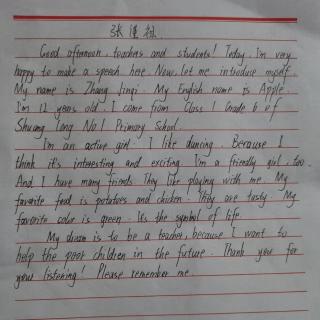 张
Good afternoon, teachers and students! Today, I'm very
happy to make a speech here. Now, let me introduce myself.
My name is Zhang Jingi. My English name is Apple.
I'm 12 years old. I come from Class 1 Grade 6 of
Shuang Long No.1 Primary School.
I'm an active girl. I like dancing. Because I
think it's interesting and exciting. I'm a friendly girl, too.
And I have many friends. They like playing with me. My
favorite food is potatoes and chicken. They are tasty. My
favorite color is green. It's the symbol of life.
My dream is to be a teacher, because I want to
help the poor children in the future. Thank you for
your listening! Please remember me.